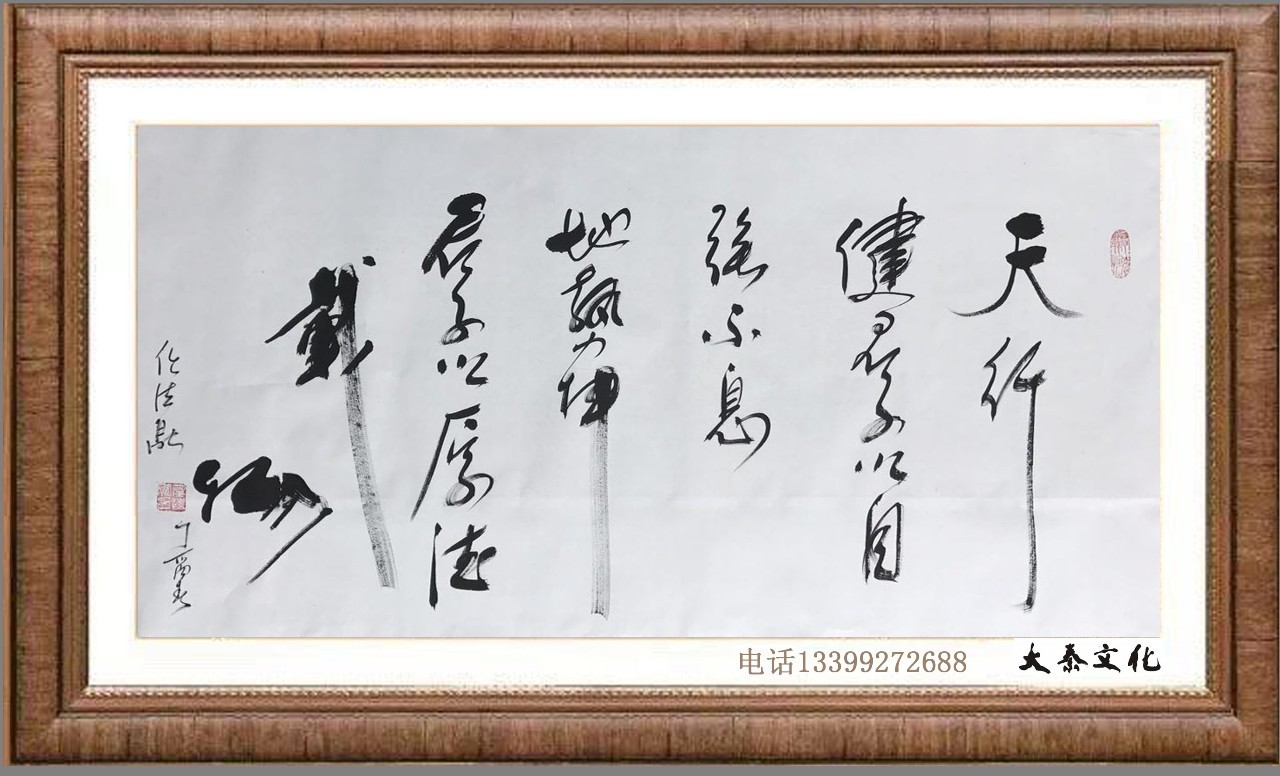 天行
健君子以自
強不息
地勢坤
君子以厚德
載物
任法融
丁酉
电话13399272688
大秦文化